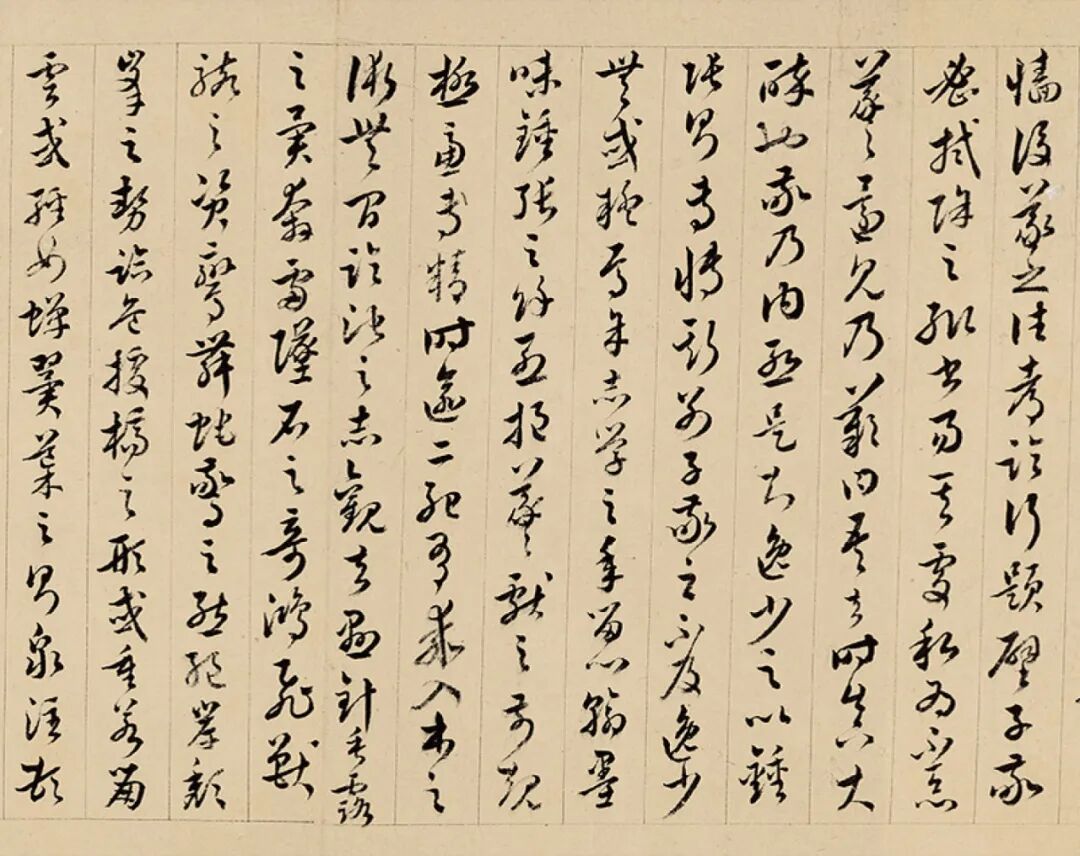 墻後羲之往都臨行題壁子敬
密拭除之輙書易其處私為不惡
羲之還見乃歎曰吾去時真大
醉也敬乃內慙是知逸少之比鍾
張則專博斯別子敬之不及逸少
無或疑焉余志學之年留心翰墨
味鍾張之餘烈挹羲獻之前規
極慮專精時逾二紀有乖入木之
術無間臨池之志觀夫懸針垂露
之異奔雷墜石之奇鴻飛獸
駭之資鸞舞蛇驚之態絕岸頹
峯之勢臨危據槁之形或重若崩
雲或輕如蟬翼導之則泉注頓